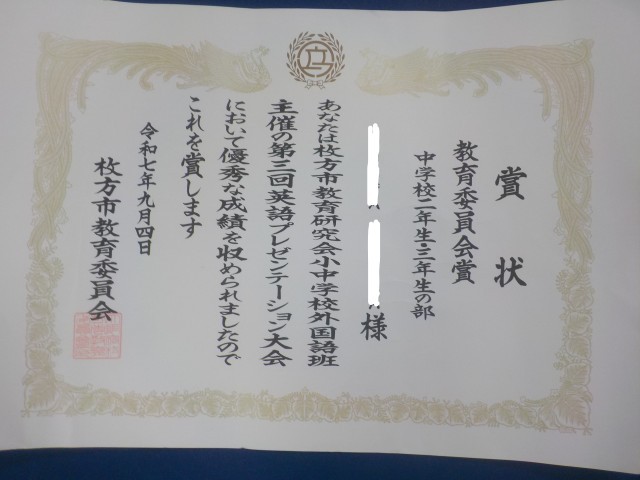 賞状
教育委員会賞
中学校二年生・三年生の部
様
あなたは枚方市教育研究会小中学校外国語班
主催の第三回英語プレゼンテーション大会
において優秀な成績を収められましたので
これを賞します
令和七年九月四日
枚方市教育委員会